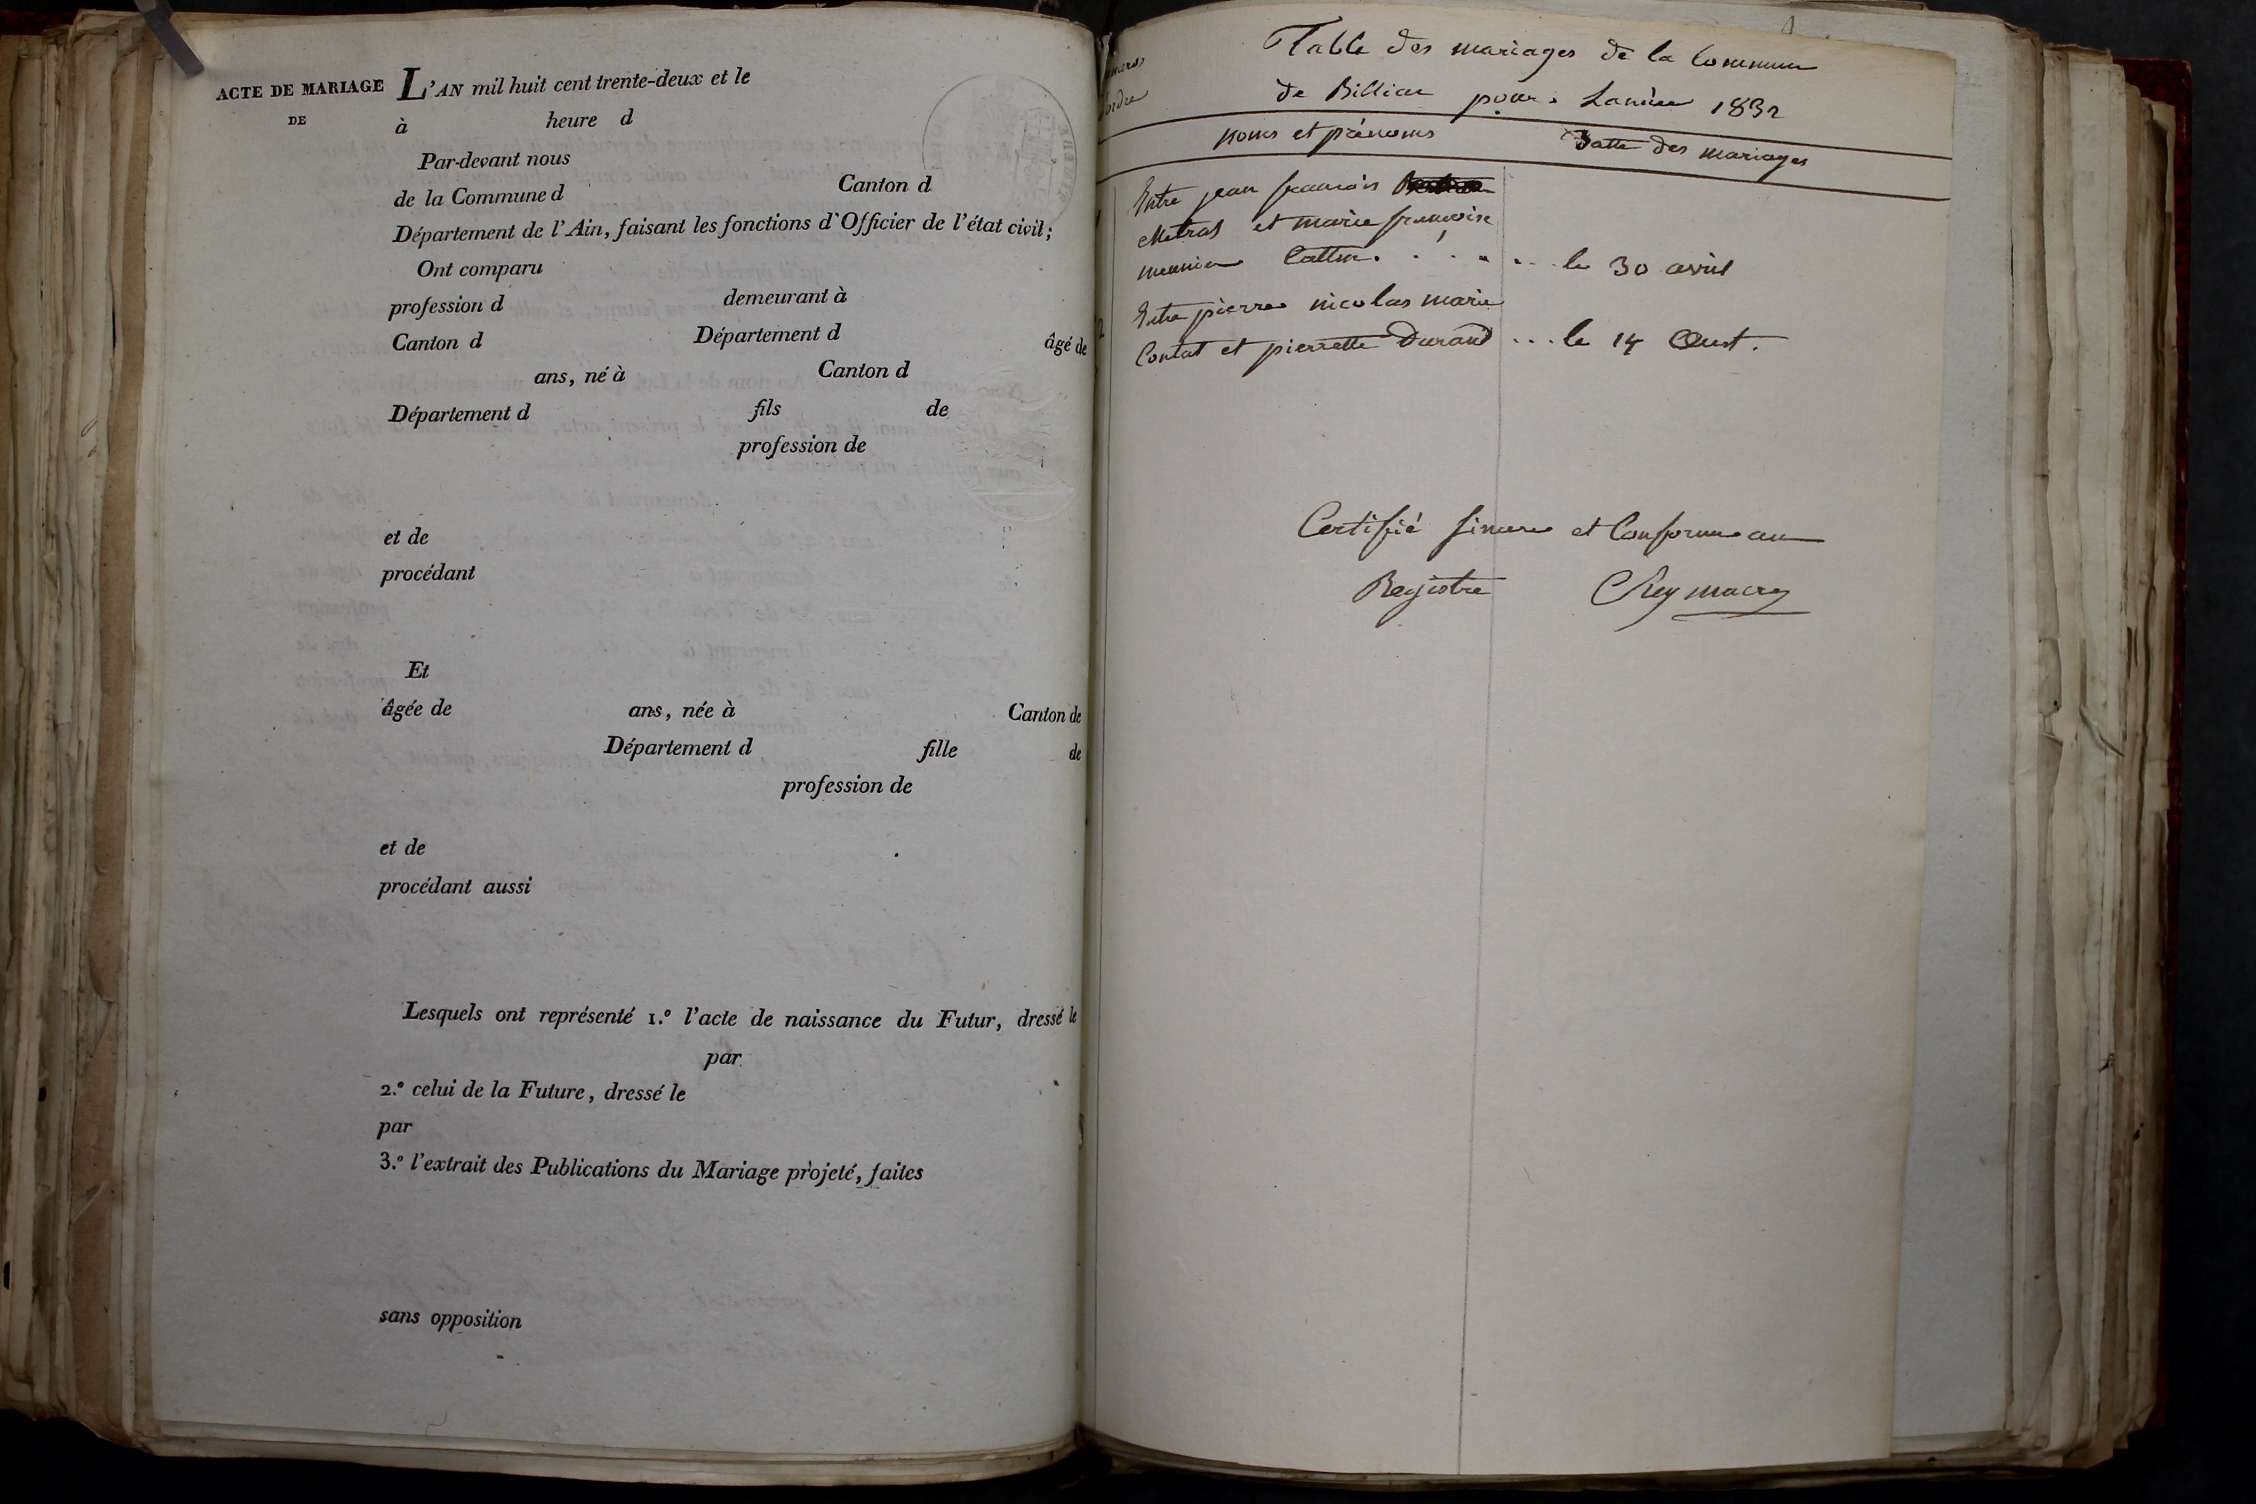 ACTE DE MARIAGE
DE
L'AN mil huit cent trente-deux et le
à heure d
Par-devant nous
de la Commune d Canton d
Département de l'Ain, faisant les fonctions d'Officier de l'état civil;
Ont comparu
profession d demeurant à
Canton d Département d âgé de
ans, né à Canton d
Département d fils de
profession de
et de
procédant
Et
âgée de ans, née à Canton de
Département d fille de
profession de
et de
procédant aussi
Lesquels ont représenté 1.º l'acte de naissance du Futur, dressé le
par
2.º celui de la Future, dressé le
par
3.º l'extrait des Publications du Mariage projeté, faites
sans opposition
Table des mariages de la Commune
de Billiac pour Lannée 1832
noms et prénoms Datte des mariages
1 Entre jean francois
Metral et marie francoise
meunier Cattin . . . . . . le 30 avril
2 Entre pierre nicolas marie
Contat et pierrette Durand ... le 14 Oust.
Certifié sincere et Conforme au
Registre Rey maire